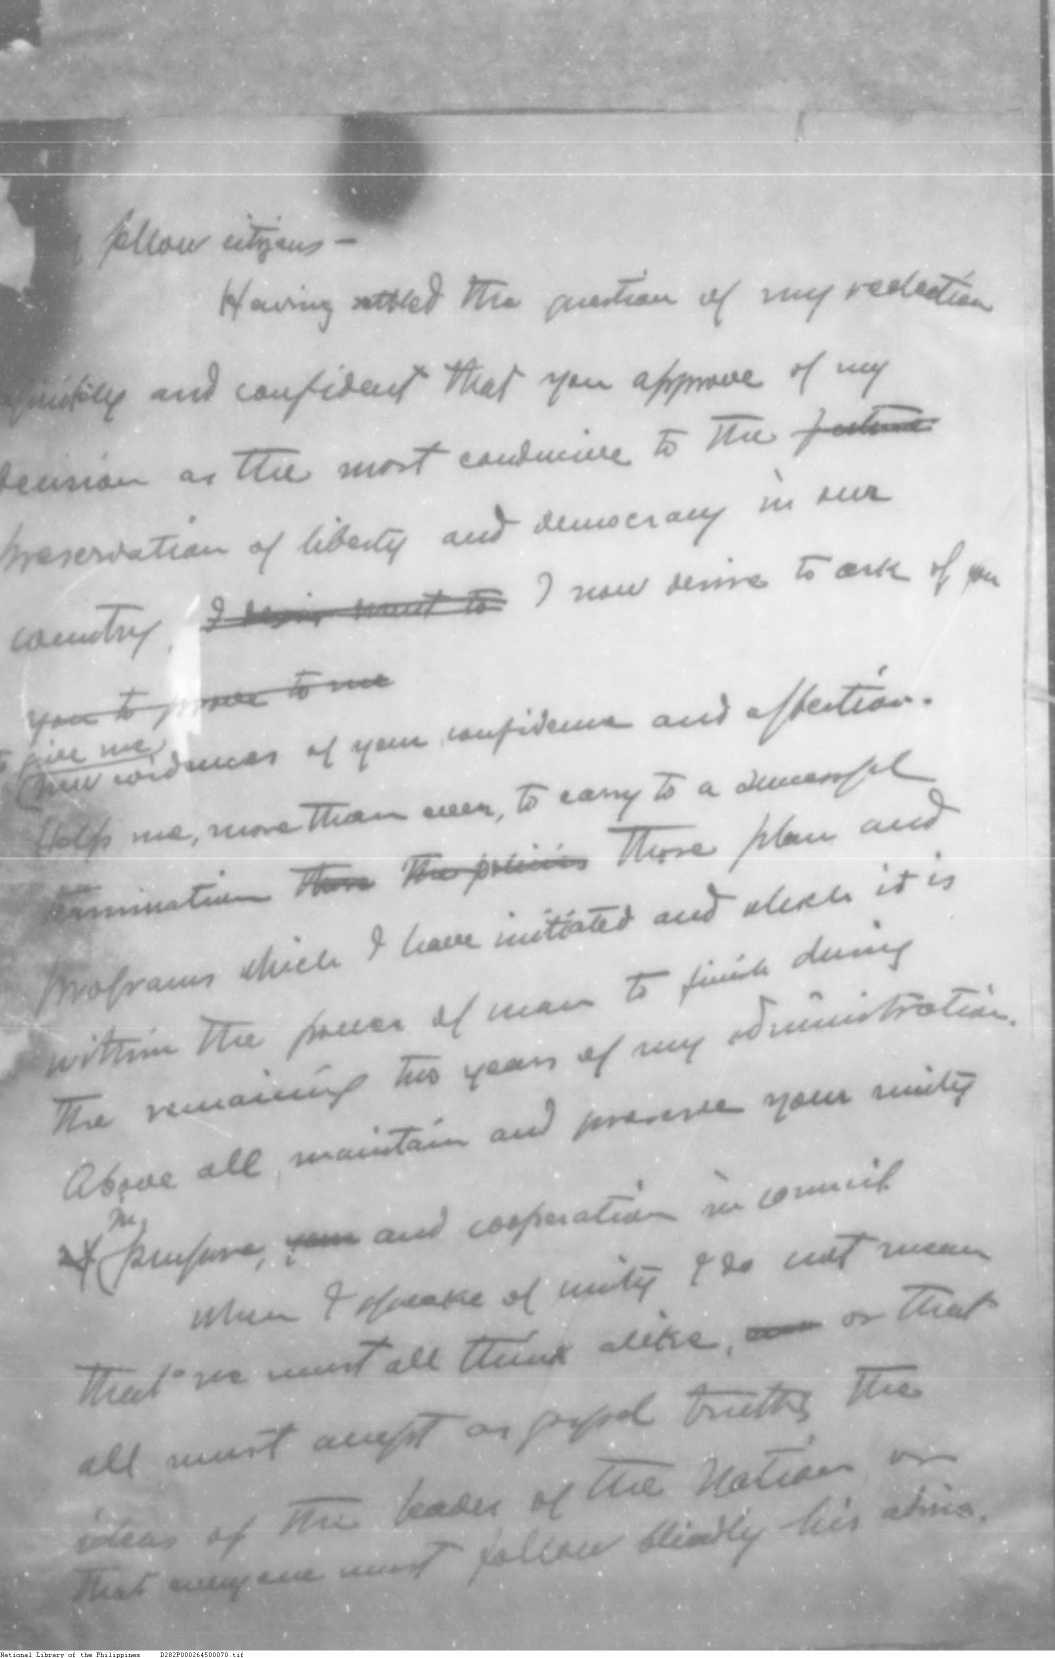 fellow citizens —
Having settled the question of my reelection
quickly and confident that you approve of my
decision as the most conducive to the future
preservation of liberty and democracy in our
country, I desire want to I now desire to ask of you
you to prove to me
to give me
new evidences of your confidence and affection.
Help me, more than ever, to carry to a successful
termination those the policies those plan and
programs which I have initiated and which it is
within the power of man to finish during
the remaining two years of my administration.
Above all, maintain and preserve your unity
in
of purpose, your and cooperation in council
When I speake of unity I do not mean
that we must all think alike, or that
all must accept as gospel truths the
ideas of the leader of the Nation or
that everyone must follow blindly his
National Library of the Philippines D282P000264500070.tif